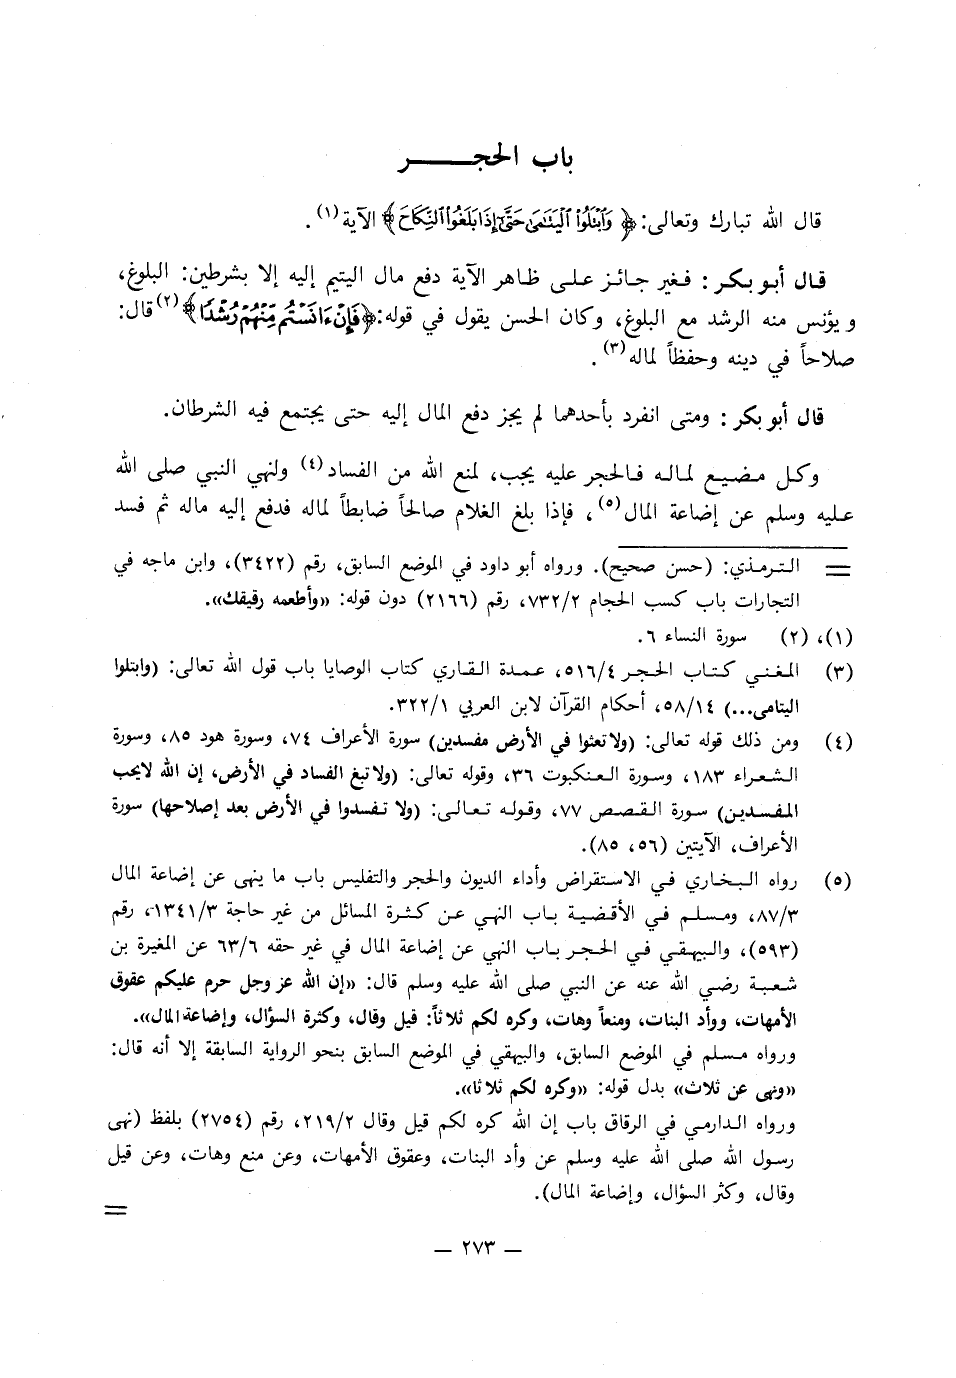 باب الحجر
قال الله تبارك وتعالى: ﴿وَٱبْتَلُواْ ٱلْيَتَٰمَىٰ حَتَّىٰٓ إِذَا بَلَغُواْ ٱلنِّكَاحَ﴾ الآية (١).
قال أبو بكر: فغير جائز على ظاهر الآية دفع مال اليتيم إليه إلا بشرطين: البلوغ،
ويؤنس منه الرشد مع البلوغ، وكان الحسن يقول في قوله: ﴿فَإِنْ ءَانَسْتُم مِّنْهُمْ رُشْدًا﴾ (٢) قال:
صلاحاً في دينه وحفظاً لماله (٣).
قال أبو بكر: ومتى انفرد بأحدهما لم يجز دفع المال إليه حتى يجتمع فيه الشرطان.
وكل مضيع لماله فالحجر عليه يجب، لمنع الله من الفساد (٤) ولنهي النبي صلى الله
عليه وسلم عن إضاعة المال (٥)، فإذا بلغ الغلام صالحاً ضابطاً لماله فدفع إليه ماله ثم فسد
= الترمذي: (حسن صحيح). ورواه أبو داود في الموضع السابق، رقم (٣٤٢٢)، وابن ماجه في
التجارات باب كسب الحجام ٧٣٢/٢، رقم (٢١٦٦) دون قوله: «وأطعمه رقيقك».
(١)، (٢) سورة النساء ٦.
(٣) المغني كتاب الحجر ٥١٦/٤، عمدة القاري كتاب الوصايا باب قول الله تعالى: (وابتلوا
اليتامى...) ٥٨/١٤، أحكام القرآن لابن العربي ٣٢٢/١.
(٤) ومن ذلك قوله تعالى: (ولا تعثوا في الأرض مفسدين) سورة الأعراف ٧٤، وسورة هود ٨٥، وسورة
الشعراء ١٨٣، وسورة العنكبوت ٣٦، وقوله تعالى: (ولا تبغ الفساد في الأرض، إن الله لا يحب
المفسدين) سورة القصص ٧٧، وقوله تعالى: (ولا تفسدوا في الأرض بعد إصلاحها) سورة
الأعراف، الآيتين (٥٦، ٨٥).
(٥) رواه البخاري في الاستقراض وأداء الديون والحجر والتفليس باب ما ينهى عن إضاعة المال
٨٧/٣، ومسلم في الأقضية باب النهي عن كثرة المسائل من غير حاجة ١٣٤١/٣، رقم
(٥٩٣)، والبيهقي في الحجر باب النهي عن إضاعة المال في غير حقه ٦٣/٦ عن المغيرة بن
شعبة رضي الله عنه عن النبي صلى الله عليه وسلم قال: «إن الله عز وجل حرم عليكم عقوق
الأمهات، ووأد البنات، ومنعاً وهات، وكره لكم ثلاثاً: قيل وقال، وكثرة السؤال، وإضاعة المال».
ورواه مسلم في الموضع السابق، والبيهقي في الموضع السابق بنحو الرواية السابقة إلا أنه قال:
«ونهى عن ثلاث» بدل قوله: «وكره لكم ثلاثا».
ورواه الدارمي في الرقاق باب إن الله كره لكم قيل وقال ٢١٩/٢، رقم (٢٧٥٤) بلفظ (نهى
رسول الله صلى الله عليه وسلم عن وأد البنات، وعقوق الأمهات، وعن منع وهات، وعن قيل
وقال، وكثر السؤال، وإضاعة المال).
=
— ٢٧٣ —